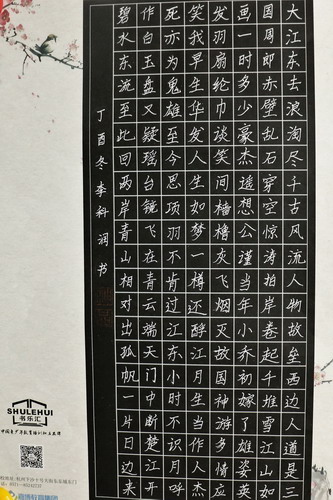 大江东去浪淘尽千古风流人物故垒西边人道是三
国周郎赤壁乱石穿空惊涛拍岸卷起千堆雪江山如
画一时多少豪杰遥想公瑾当年小乔初嫁了雄姿英
发羽扇纶巾谈笑间樯橹灰飞烟灭故国神游多情应
笑我早生华发人生如梦一樽还酹江月生当作人杰
死亦为鬼雄至今思项羽不肯过江东小时不识月呼
作白玉盘又疑瑶台镜飞在青云端天门中断楚江开
碧水东流至此回两岸青山相对出孤帆一片日边来
丁酉冬李科润书
SHULEHUI
书乐汇